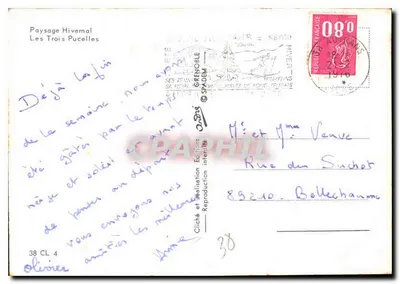 Paysage Hivernal
Les Trois Pucelles
Déjà la fin
de la semaine, nous avons
été gâtés par le temps
neige et soleil et avant
de penser au départ
nous envoyons nos
amitiés les meilleures
olivier
38 CL 4
Cliché et réalisation Editions André GRENOBLE
Reproduction interdite © SPADEM
0.80
REPUBLIQUE FRANCAISE
1976
Mr et Mme Venuve
Rue du Suchot
89210 Bellechaume
38
PostCarte